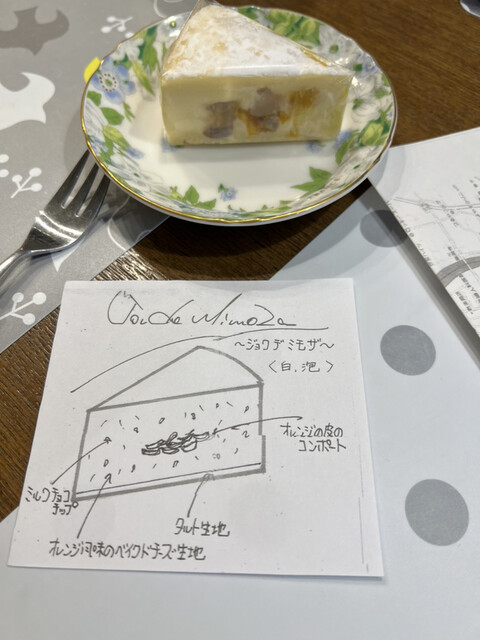 〜ジョクデミモザ〜
〈白、泡〉
オレンジの皮の
コンポート
ミルクチョコ
チップ
タルト生地
オレンジ風味のベイクドチーズ生地